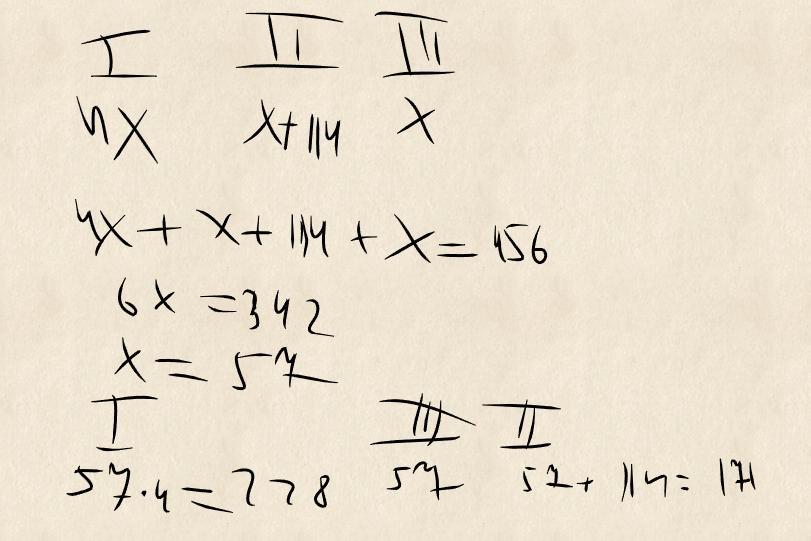 I II III
4x x+114 x
4x + x + 114 + x = 456
6x = 342
x = 57
I III II
57.4 = 228 57 57 + 114 = 171